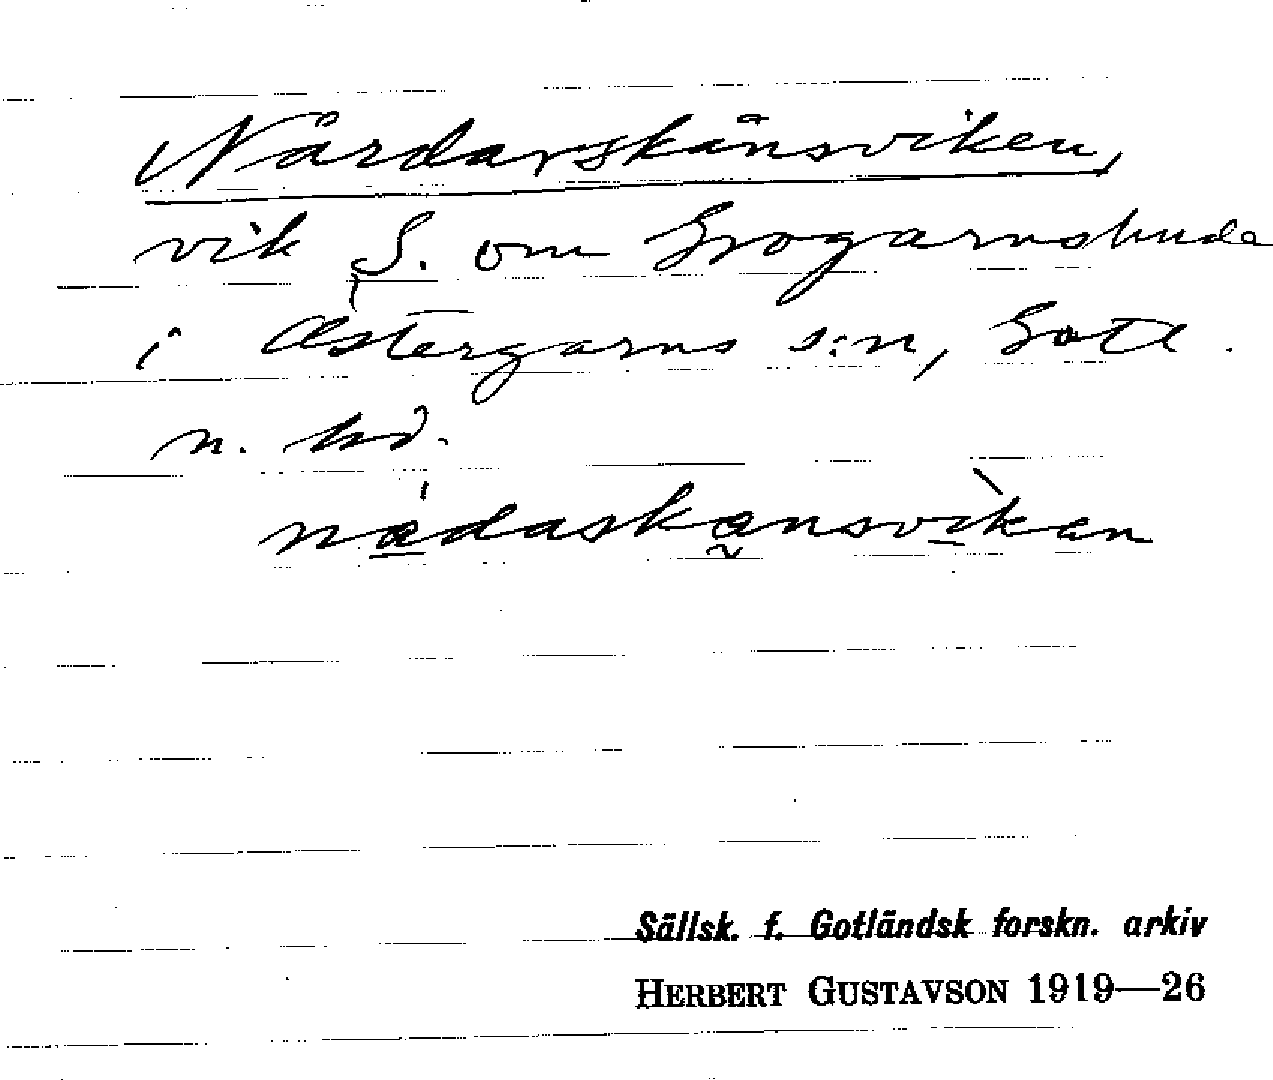 Nårdarskånsviken,
vik S. om Grogarnshuda
i Östergarns s:n, Gotl.
n. hd.
nadaskansvikan
Sällsk. f. Gotländsk forskn. arkiv
HERBERT GUSTAVSON 1919—26